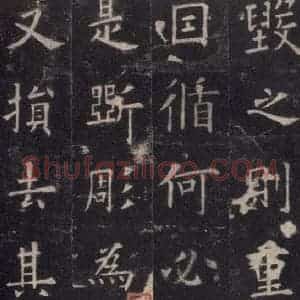 毀之則重
因循何必
是斲彫為
又損去其
Shufaziliao.com